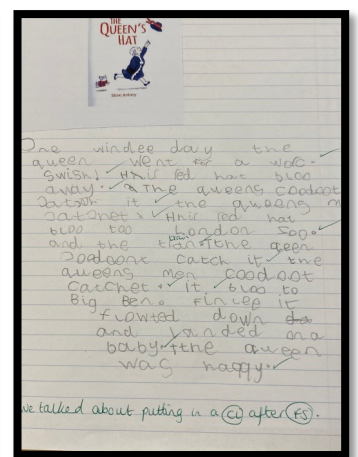 THE
QUEEN'S
HAT
Steve Antony
One windee day the
queen went for a worc.
Swish! Hnir red hat bloo
away. The queens coodoot
catch it the queens m
catchet. Hnir red hat
bloo too London Soo.
and the train the qeen
coodoont catch it the
queens men coodoot
catchet it bloo to
Big Ben. Finlee it
flowted down
and landed on a
baby the queen
was happy.
we talked about putting in a CL after FS.